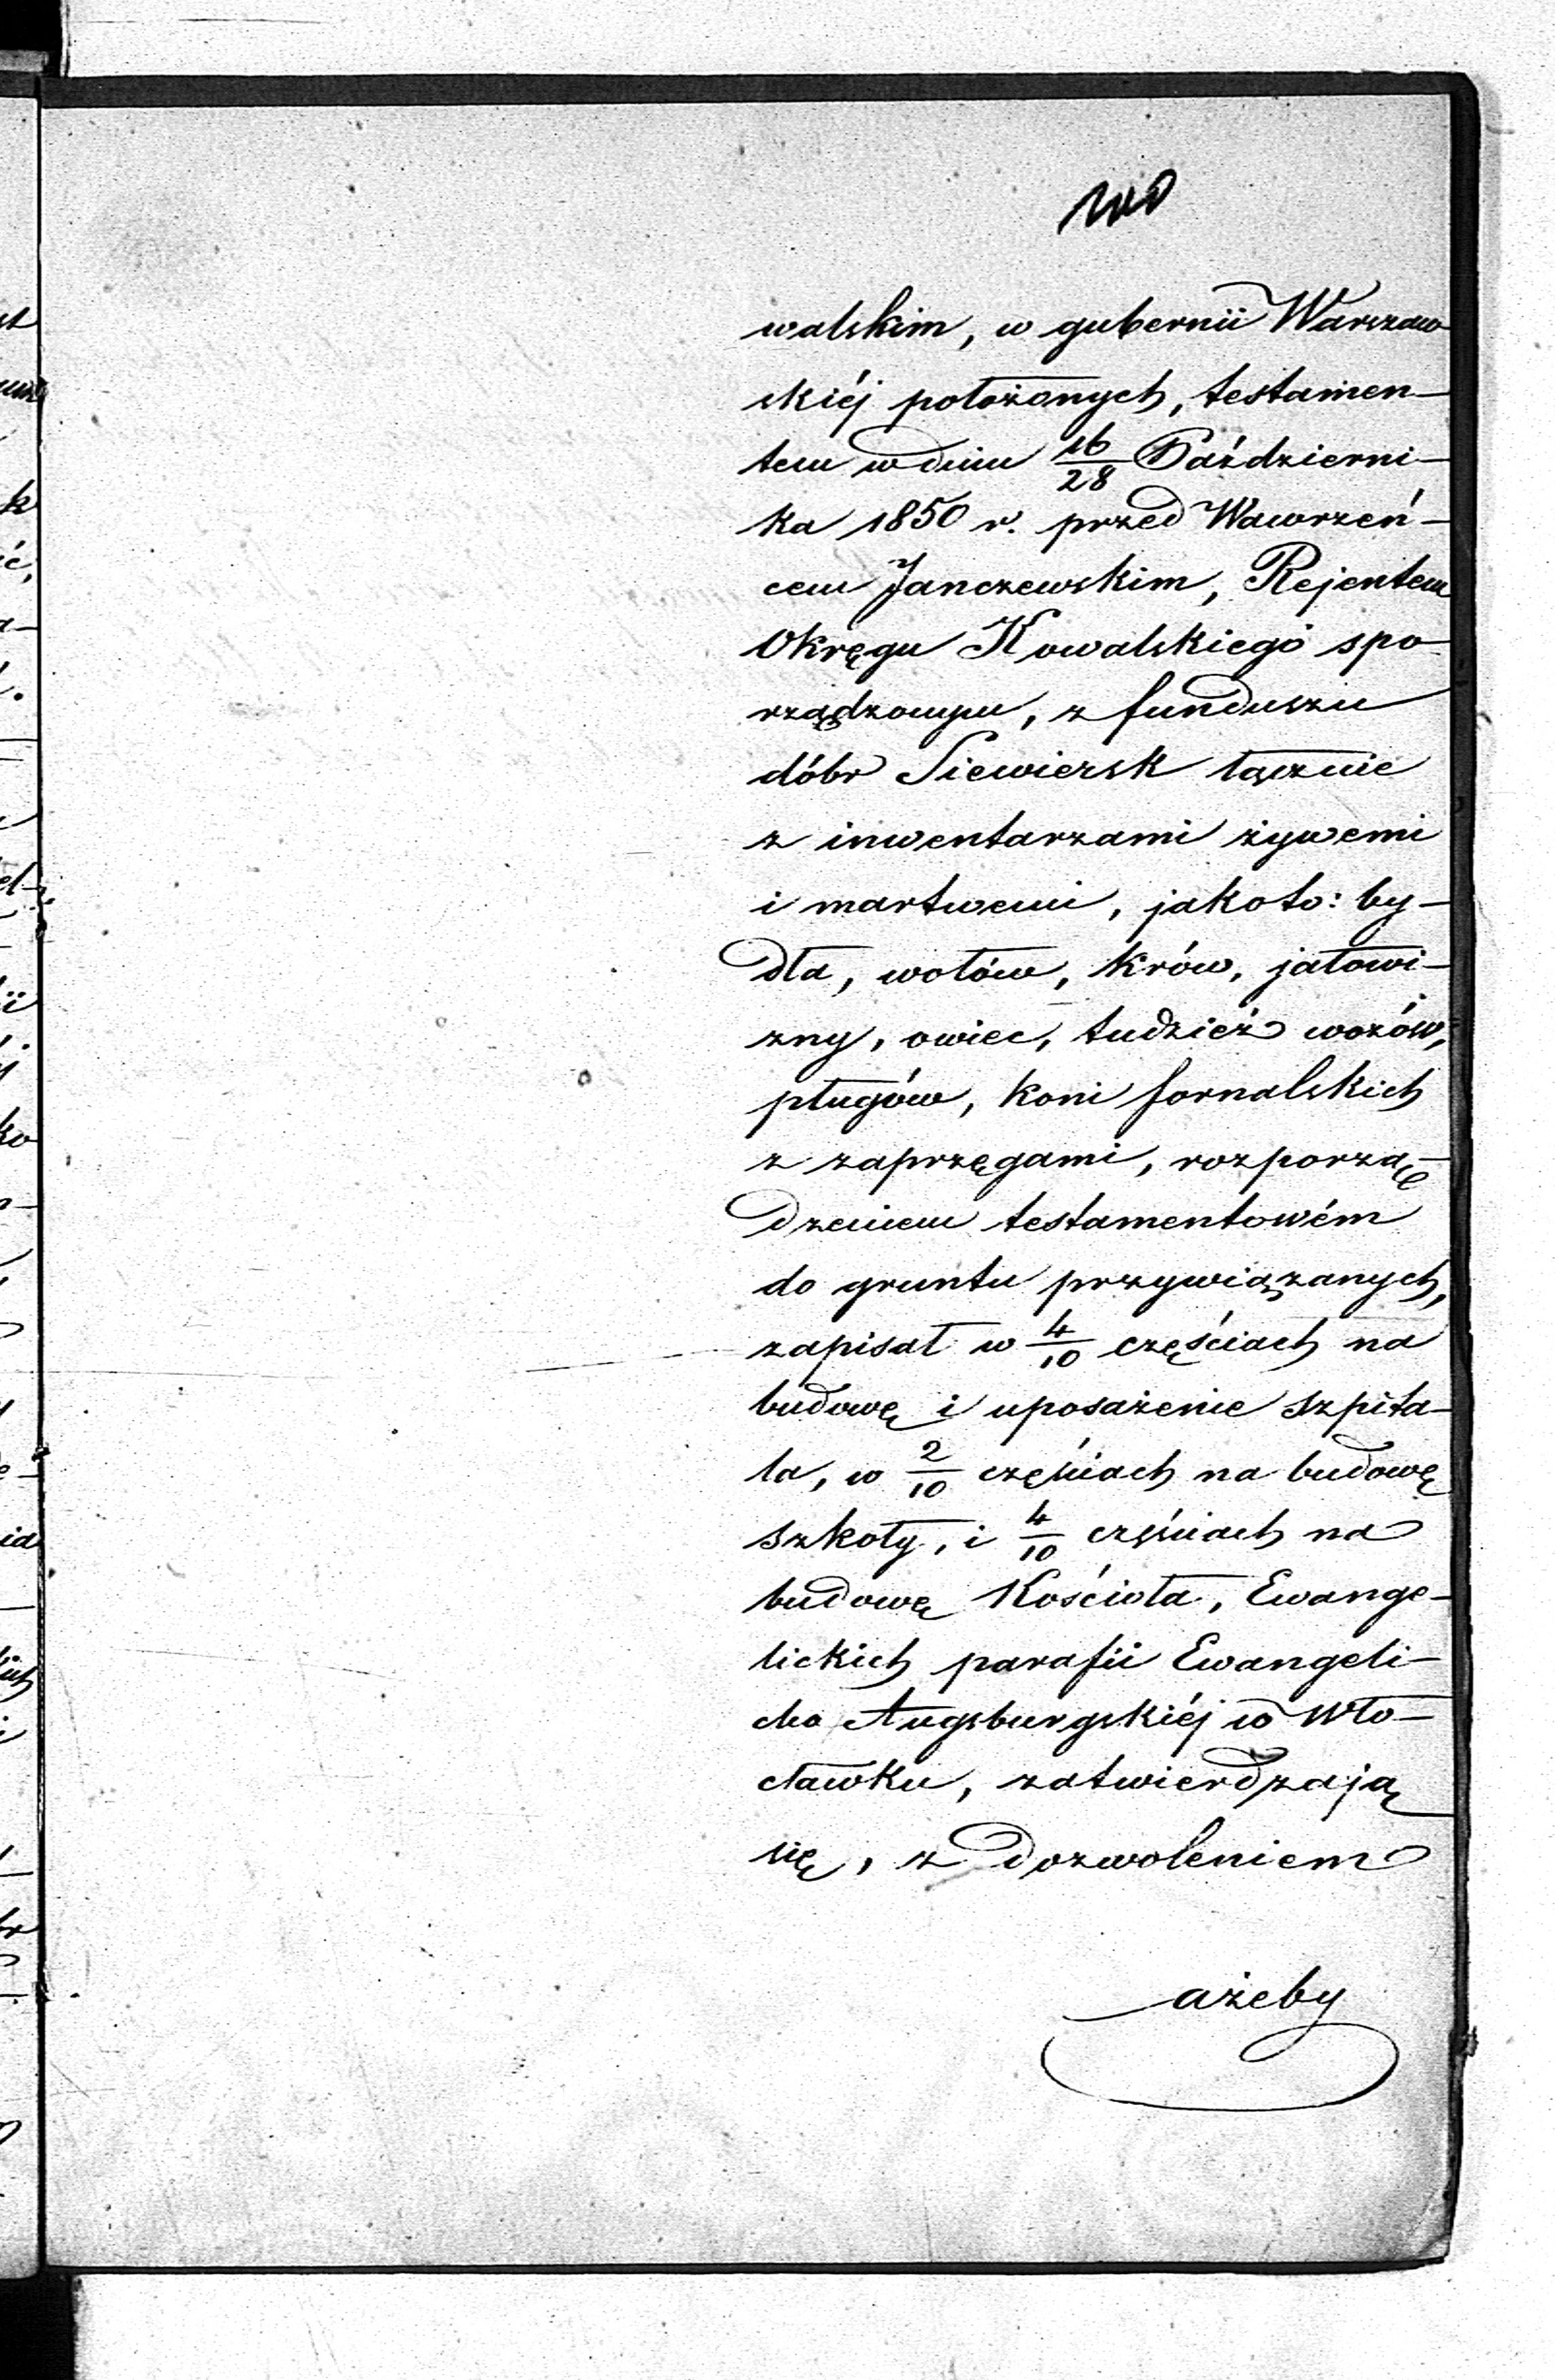 100
walskim, w gubernii Warszaw
skiéj położonych, testamen-
tem w dniu 16/28 Październi-
ka 1850 r. przed Wawrzeń-
cem Janczewskim, Rejentem
Okręgu Kowalskiego spo-
rządzonym, z funduszu
dóbr Siewiersk łącznie
z inwentarzami żywemi
i martwemi, jakoto: by-
dła, wołów, krów, jałowi-
zny, owiec, tudzież wozów,
pługów, koni fornalskich
z zaprzęgami, rozporzą-
dzeniem testamentowém
do gruntu przywiązanych,
zapisał w 4/10 częściach na
budowę i uposażenie szpita-
la, w 2/10 częściach na budowę
szkoły, i 4/10 częściach na
budowę Kościoła, Ewange-
lickich parafii Ewangeli-
cko Augsburgskiéj w Wło-
cławku, zatwierdzają
się, z dozwoleniem
ażeby